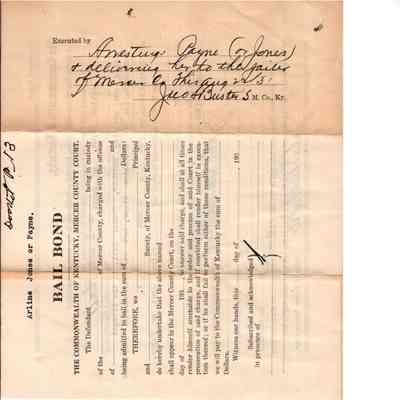 Executed by
Arresting Payne (or Jones)
& delivering her to the Jailer
of Mercer Co This Aug
Buster S M. Co., Ky.
Arline Jones or Payne.
BAIL BOND
THE COMMONWEALTH OF KENTUCKY, MERCER COUNTY COURT.
The Defendant being in custody
of the of Mercer County, charged with the offense
of and
being admitted to bail in the sum of Dollars:
THEREFORE, we Principal
and Surety, of Mercer County, Kentucky,
do hereby undertake that the above named
shall appear in the Mercer County Court, on the
day of 191 to answer said charge, and shall at all times
render himself amenable to the order and process of said Court in the
prosecution of said charge, and if convicted shall render himself in execu-
tion thereof; or if he shall fail to perform either of these conditions, that
we will pay to the Commonwealth of Kentucky the sum of
Dollars.
Witness our hands, this day of 191
Subscribed and acknowledged
in presence of